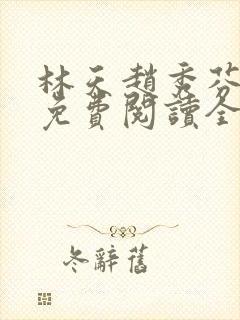 林天趙秀芬
免費閱讀全
冬辭舊